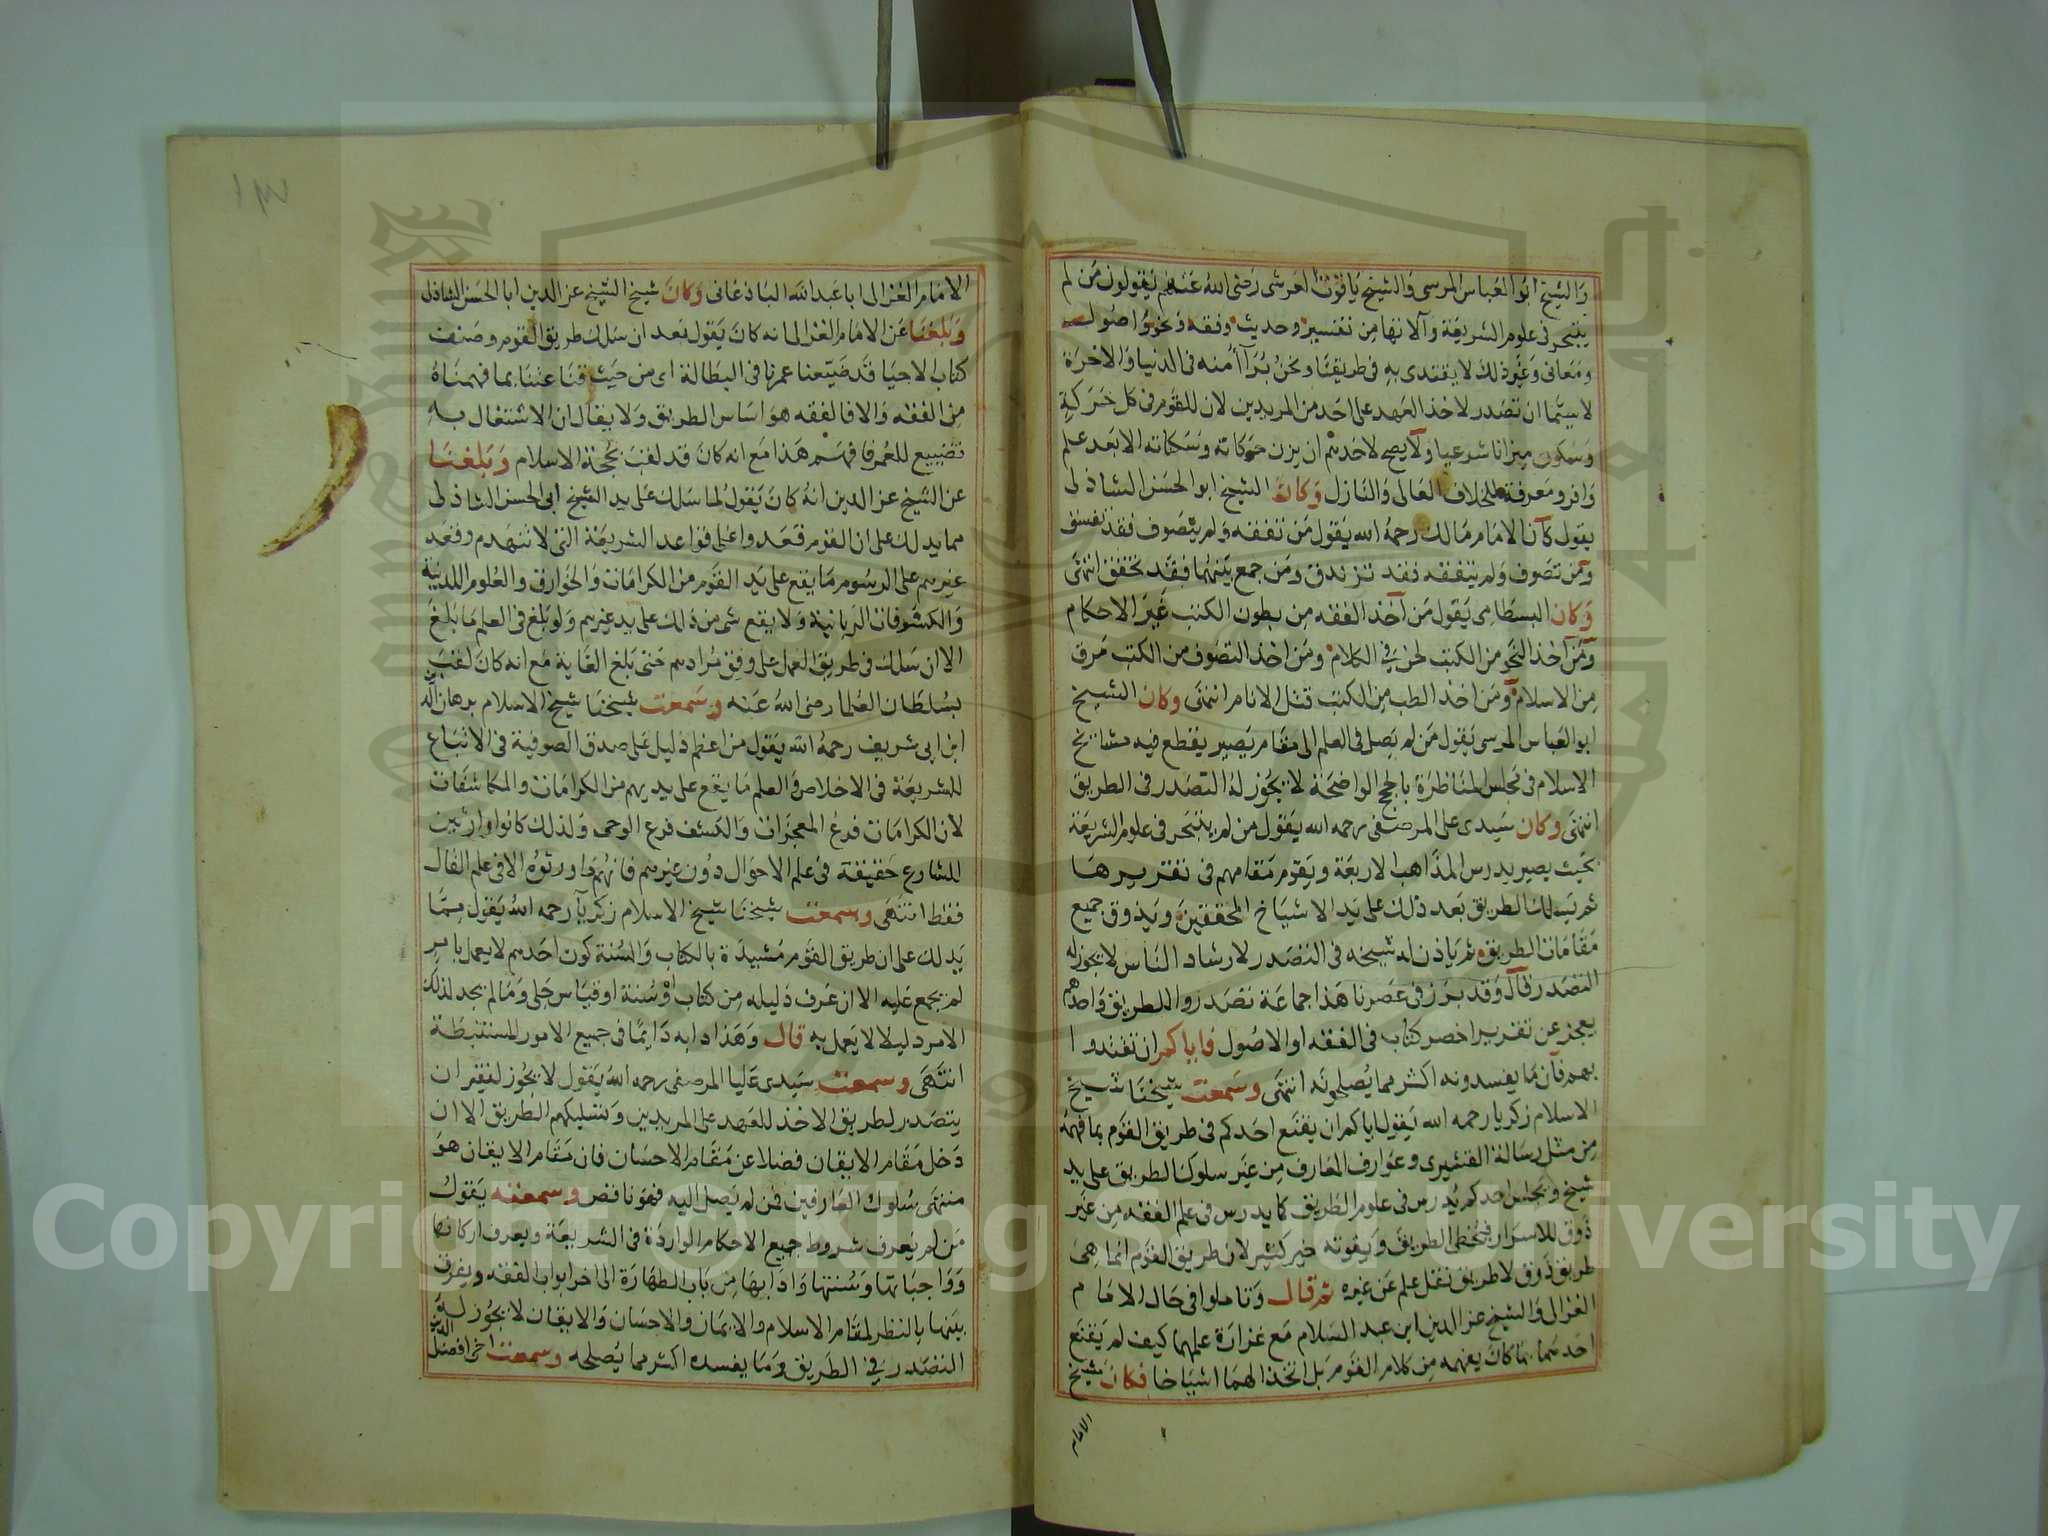 والشيخ ابو العباس المرسى والشيخ ياقوت العرشى رضى الله عنهم يقولون من لم
يتبحر فى علوم الشريعة وآلاتها من تفسير وحديث وفقه ونحو واصول
ومعانى وغير ذلك لا يقتدى به فى طريقنا ونحن برآأ منه فى الدنيا والاخرة
لاسيما ان تصدر لاخذ العهد على احد من المريدين لان للقوم فى كل حركة
وسكون ميزانا شرعيا ولا يصح لاحدهم ان يزن حركاته وسكناته الا بعد علم
وافر ومعرفة بالخلاف العالى والنازل وكان الشيخ ابو الحسن الشاذلى
يقول كان الامام مالك رحمه الله يقول من تفقه ولم يتصوف فقد تفسق
ومن تصوف ولم يتفقه فقد تزندق ومن جمع بينهما فقد تحقق انتهى
وكان البسطامى يقول من اخذ الفقه من بطون الكتب غير الاحكام
ومن اخذ النحو من الكتب لحن فى الكلام ومن اخذ التصوف من الكتب مرق
من الاسلام ومن اخذ الطب من الكتب قتل الانام انتهى وكان الشيخ
ابو العباس المرسى يقول من لم يصل فى العلم الى مقام يصير يقطع فيه مشايخ
الاسلام فى مجلس المناظرة بالحجج الواضحة لا يجوز له التصدر فى الطريق
انتهى وكان سيدى على المرصفى رحمه الله يقول من لم يتبحر فى علوم الشريعة
بحيث يصير يدرس المذاهب الاربعة ويقوم مقامهم فى تقريرها
ثم يسلك الطريق بعد ذلك على يد الاشياخ المحققين ويذوق جميع
مقامات الطريق ثم ياذن له شيخه فى التصدر لارشاد الناس لا يجوز له
التصدر قال وقد برز فى عصرنا هذا جماعة تصدروا للطريق واحدهم
يعجز عن تقرير اخصر كتاب فى الفقه او الاصول فاياكم ان تقتدوا
بهم فان ما يفسدونه اكثر مما يصلحونه انتهى وسمعت شيخنا شيخ
الاسلام زكريا رحمه الله يقول اياكم ان يقنع احدكم فى طريق القوم بما فهمه
من مثل رسالة القشيرى وعوارف المعارف من غير سلوك الطريق على يد
شيخ ويجلس احدكم يدرس فى علوم الطريق كما يدرس فى علم الفقه من غير
ذوق للاسرار فيخطى الطريق ويفوته خير كثير لان طريق القوم انما هى
طريق ذوق لا طريق نقل علم عن غيره ثم قال وتاملوا فى حال الامام
الغزالى والشيخ عز الدين ابن عبد السلام مع غزارة علمهما كيف لم يقنع
احدهما بما كان يفهمه من كلام القوم بل اتخذا لهما اشياخا فكان شيخ
الامام
الامام الغزالى ابا عبد الله الباذغانى وكان شيخ الشيخ عز الدين ابا الحسن الشاذلى
وبلغنا عن الامام الغزالى انه كان يقول بعد ان سلك طريق القوم وصنف
كتاب الاحيا قد ضيعنا عمرنا فى البطالة اى من حيث قناعتنا بما فهمناه
من الفقه والا فالفقه هو اساس الطريق ولا يقال ان الاشتغال به
تضييع للعمر فافهم هذا مع انه كان قد لقب بحجة الاسلام وبلغنا
عن الشيخ عز الدين انه كان يقول لما سلك على يد الشيخ ابى الحسن الشاذلى
مما يدلك على ان القوم قعدوا على قواعد الشريعة التى لا تنهدم وقعد
غيرهم على الرسوم ما يقع على يد القوم من الكرامات والخوارق والعلوم اللدنية
والكشوفات الربانية ولا يقع شى من ذلك على يد غيرهم ولو بلغ فى العلم ما بلغ
الا ان سلك فى طريق العمل على وفق مرادهم حتى بلغ الغاية مع انه كان لقب
بسلطان العلما رضى الله عنه وسمعت شيخنا شيخ الاسلام برهان الدين
ابن ابى شريف رحمه الله يقول من اعظم دليل على صدق الصوفية فى الاتباع
للشريعة فى الاخلاص والعلم ما يقع على يديهم من الكرامات والمكاشفات
لان الكرامات فرع المعجزات والكشف فرع الوحى ولذلك كانوا وارثين
للشارع حقيقة فى علم الاحوال دون غيرهم فانهم ما ورثوه الا فى علم القال
فقط انتهى وسمعت شيخنا شيخ الاسلام زكريا رحمه الله يقول مما
يدلك على ان طريق القوم مشيدة بالكتاب والسنة كون احدهم لا يعمل بامر
لم يجمع عليه الا ان عرف دليله من كتاب او سنة او قياس جلى وما لم يجد لذلك
الامر دليلا لا يعمل به قال وهذا دابه دايما فى جميع الامور المستنبطة
انتهى وسمعت سيدى عليا المرصفى رحمه الله يقول لا يجوز لفقير ان
يتصدر لطريق الاخذ للعهد على المريدين وتسليكهم الطريق الا ان
دخل مقام الايقان فضلا عن مقام الاحسان فان مقام الايقان هو
منتهى سلوك العارفين فمن لم يصل اليه فهو ناقص وسمعته يقول
من لم يعرف شروط جميع الاحكام الواردة فى الشريعة ويعرف اركانها
وواجباتها وسنتها وادابها من باب الطهارة الى اخر ابواب الفقه ويفرق
بينها بالنظر لمقام الاسلام والايمان والاحسان والايقان لا يجوز له
التصدر فى الطريق وما يفسده اكثر مما يصلحه وسمعت اخى افضل الدين